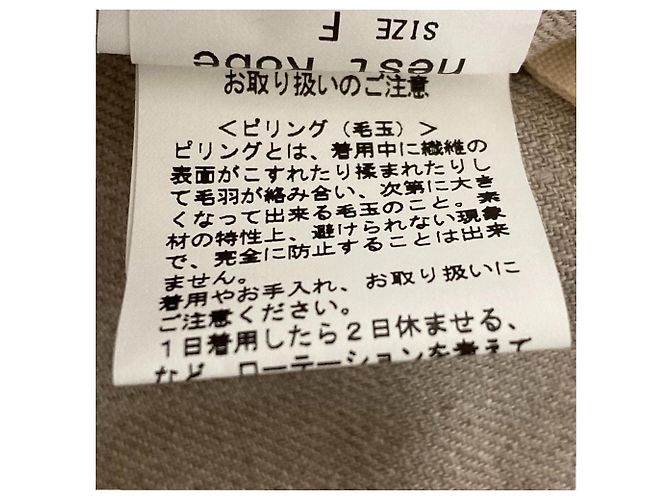 SIZE F
nest Robe
お取り扱いのご注意
＜ピリング（毛玉）＞
ピリングとは、着用中に繊維の
表面がこすれたり揉まれたりし
て毛羽が絡み合い、次第に大き
くなって出来る毛玉のこと。素
材の特性上、避けられない現象
で、完全に防止することは出来
ません。
着用やお手入れ、お取り扱いに
ご注意ください。
１日着用したら２日休ませる、
など、ローテーションを考えて